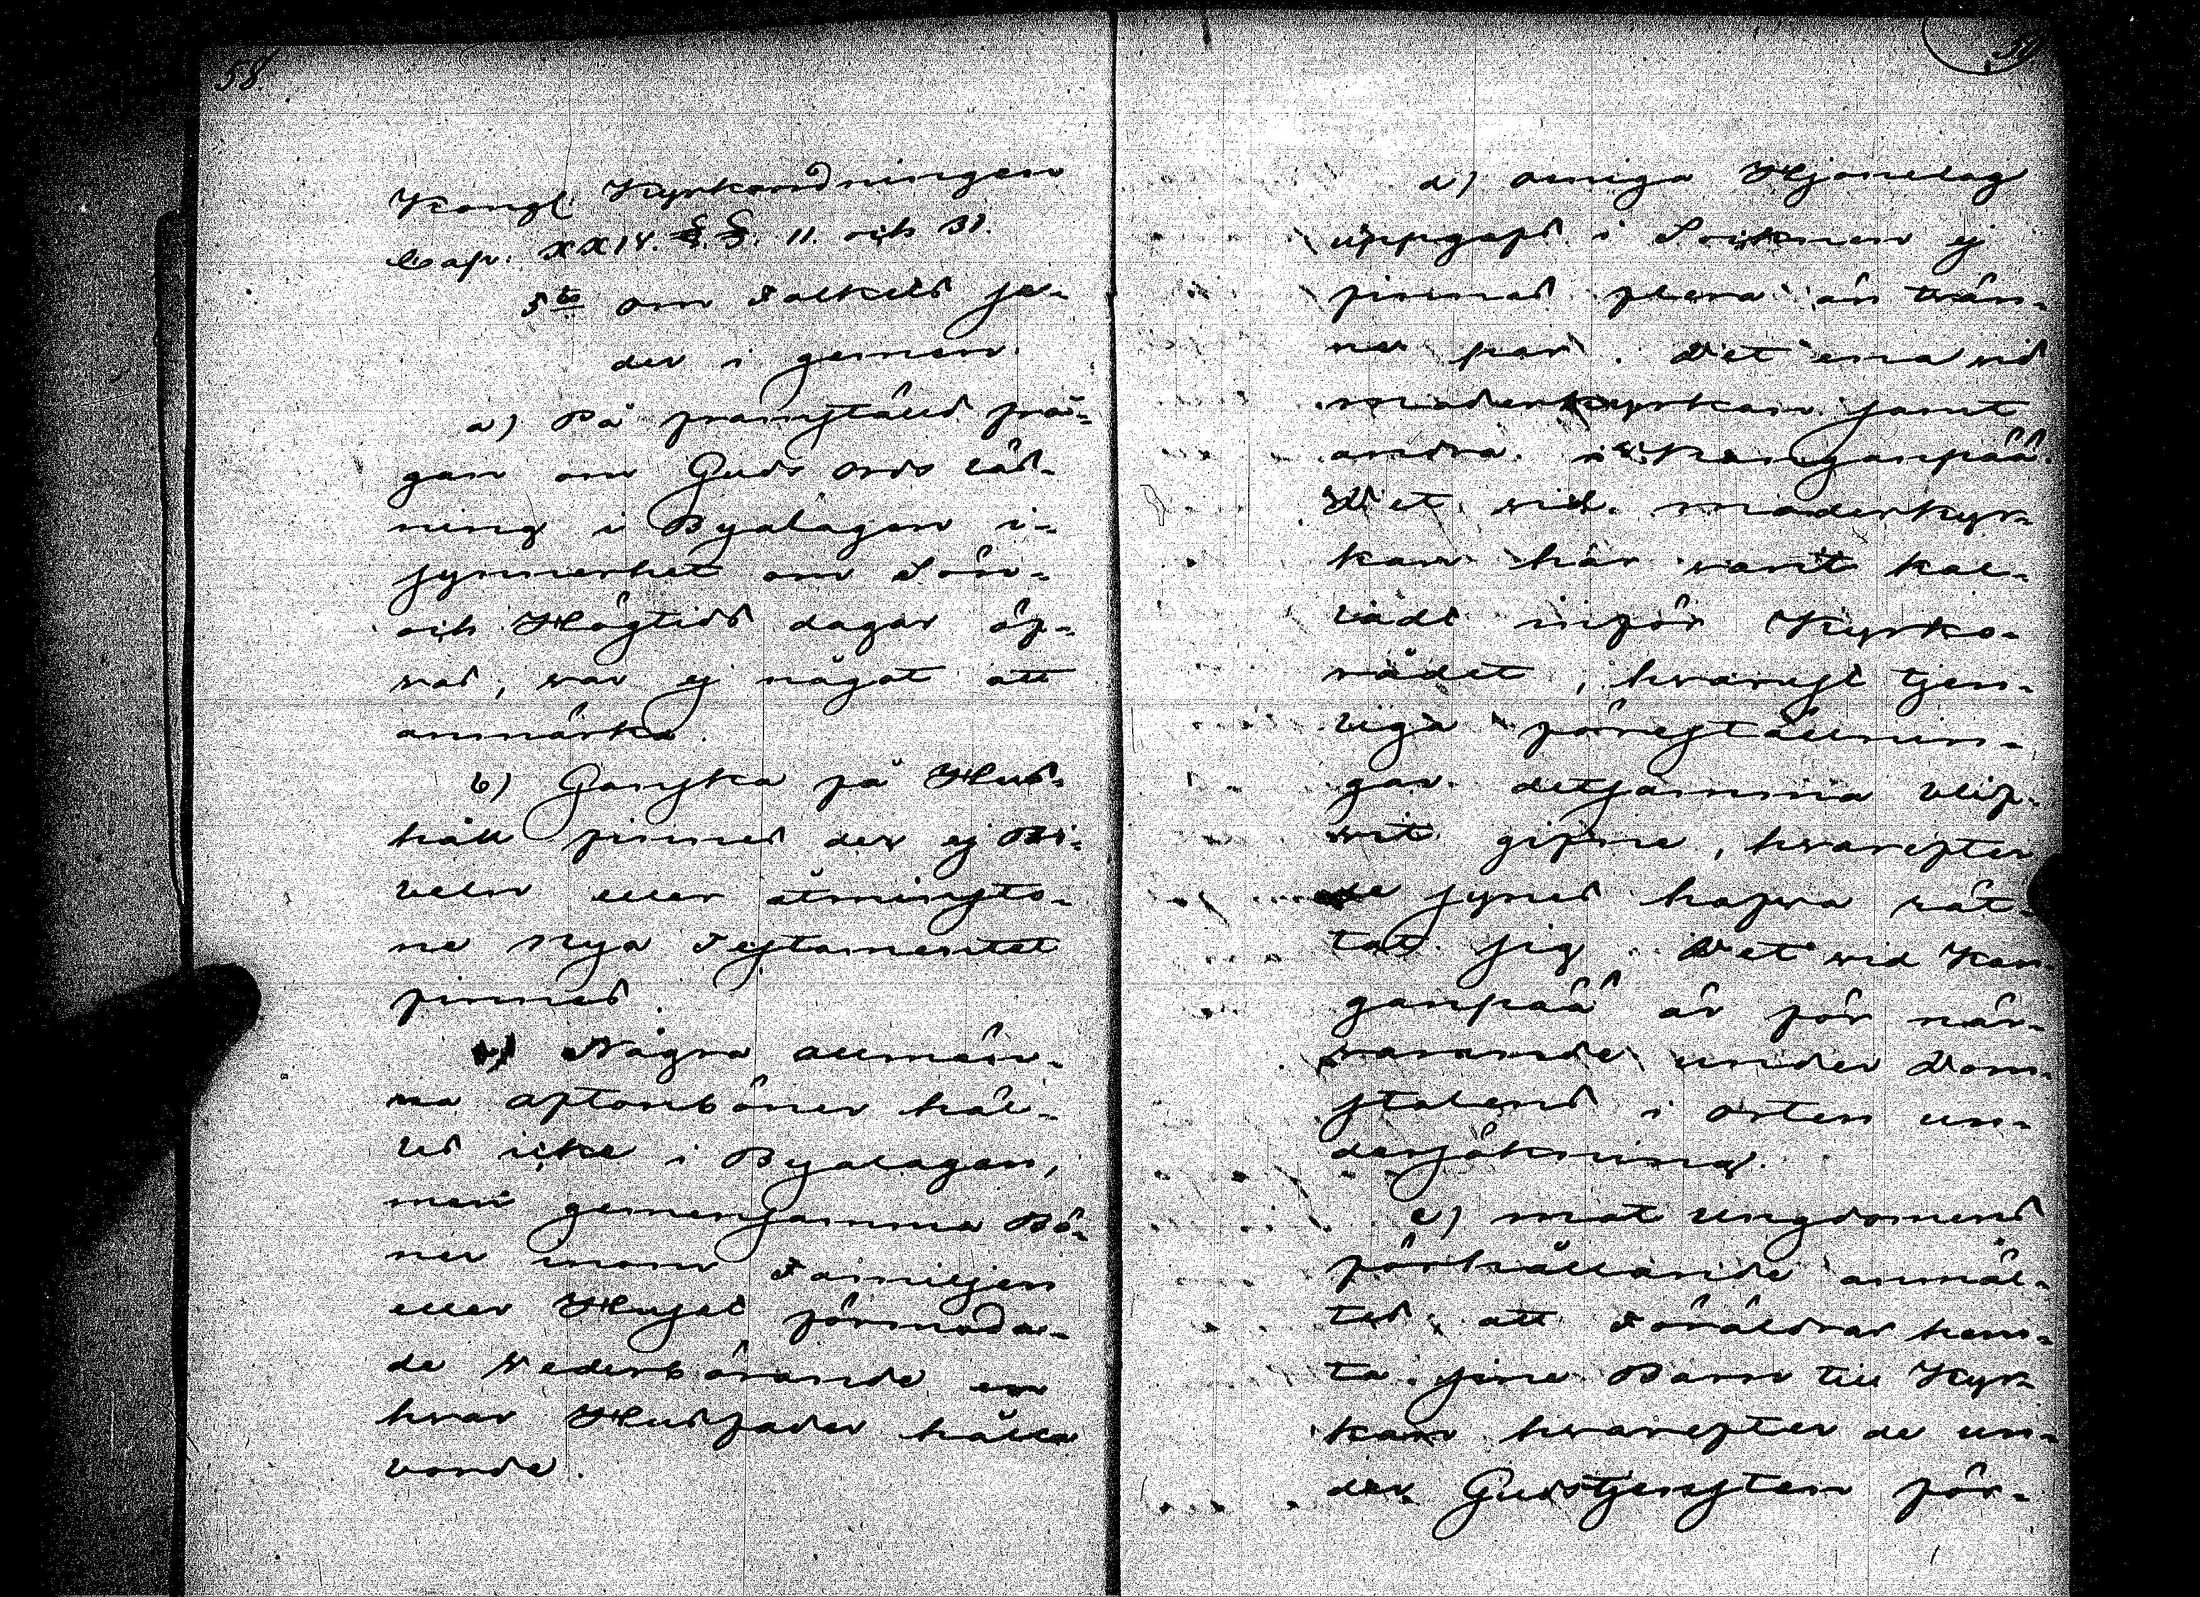 58.
Kongl. Kyrkoordningen
Cap. XXIV. §.§. 11. och 31.
5to Om Folkets se-
der i gemen.
a) På framstäld frå-
gan om Guds Ords läs-
ning i Byalagen i-
synnerhet om Sön-
och Högtids dagar öf-
vas, var ej något att
anmärka.
b) Ganska få Hus-
håll finnes der ej Bi-
beln eller åtminsto-
ne Nya Testamentet
finnas.
c) Några allmän-
na aftonböner hål-
las icke i Byalagen,
men gemensamma Bö-
ner inom Familjen
eller Huset förmoda-
de Vederbörande en
hvar Husfader hålla
borde.
d) Oeniga Hjonelag
uppgafs i Socknen ej
finnas flera än tvän-
ne par. Det ena vid
moderkyrkan samt
andra i Kanganpää.
Det vid moderkyr-
kan har varit kal-
ladt inför Kyrko-
rådet, hvarest tjen-
liga föreställnin-
gar detsamma blif-
vit gifne, hvarefter
de synes hafva rät-
tat sig. Det vid Kan-
ganpää är för när-
varande under Dom-
stolens i orten un-
dersökning.
e) mot ungdomens
förhållande anmäl-
tes, att Föräldrar hem-
ta sine Barn till Kyr-
kan hvarefter de un-
der Gudstjensten för-